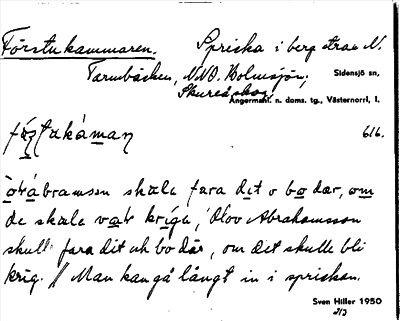 Förstukammaren. Spriska i berg strax N.
Tarmbäcken, NNO. Bolmsjön, Sidensjö sn,
Skuredskog
Ångermanl. n. doms. tg., Västernorrl. l.
616.
òràbramson skule fara dit o bo dar, om
de skule var kriga, Olov Abrahamsson
skull fara dit och bo där, om det skulle bli
krig. // Man kan gå långt in i spriskan.
Sven Hiller 1950